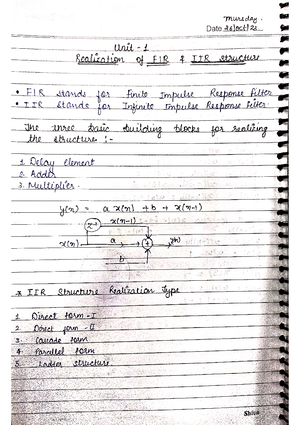 Thursday.
Date 26/oct/23
Unit - 1
Realization of FIR & IIR structure
• FIR stands for Finite Impulse Response Filter
• IIR stands for Infinite Impulse Response Filter.
The three basic building blocks for realizing
the structure :-
1. Delay element
2. Adder
3. Multiplier.
y(n) = a x(n) + b + x(n-1)
z⁻¹ x(n-1)
x(n) a + y(n)
b
* IIR Structure Realization Type
1 Direct form - I
2 Direct form - II
3 Cascade form
4 Parallel form
5. Ladder structure.